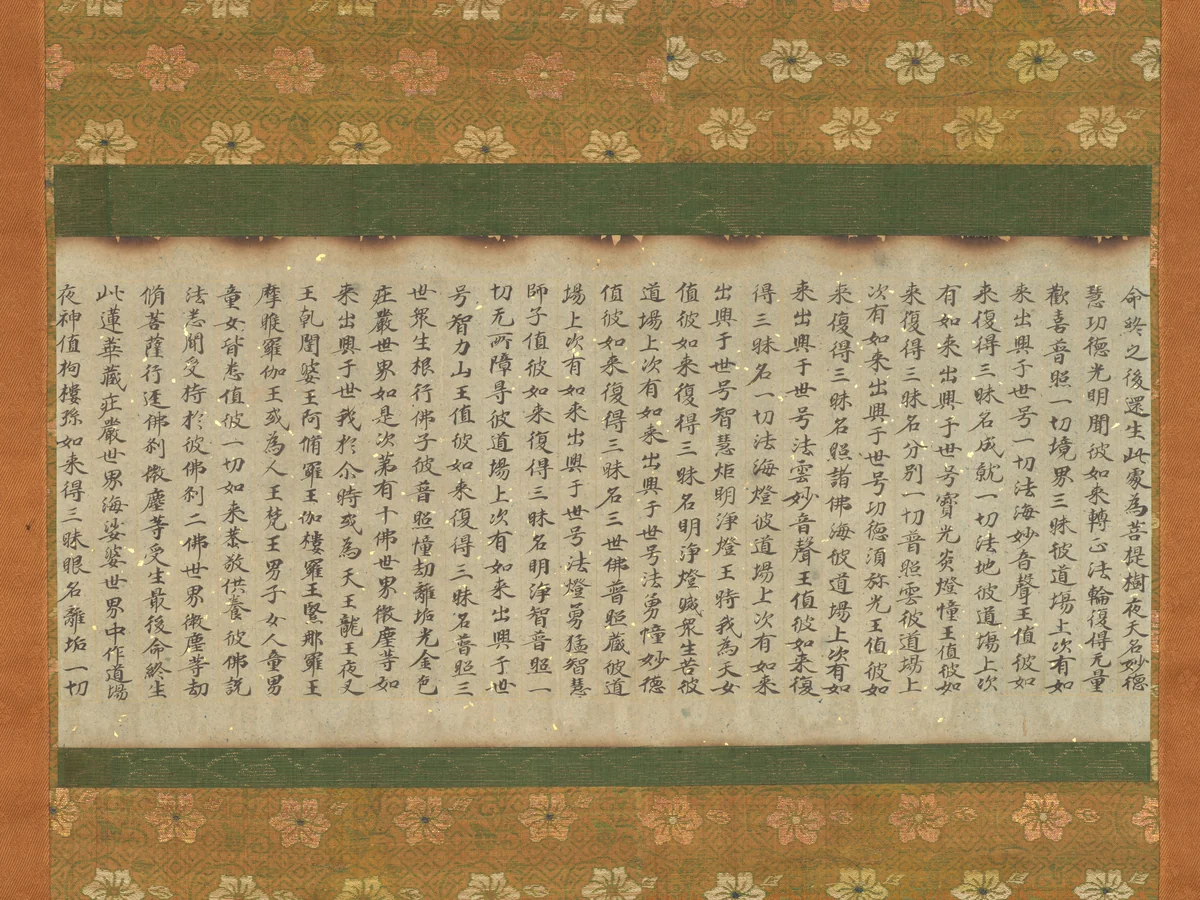 命終之後還生此處為菩提樹夜天名妙德
慧功德光明聞彼如來轉正法輪復得无量
歡喜普照一切境界三昧彼道場上次有如
来出興于世号一切法海妙音聲王值彼如
来復得三昧名成就一切法地彼道場上次
有如来出興于世号寶光炎燈幢王值彼如
来復得三昧名分別一切普照雲彼道場上
次有如来出興于世号功德湏弥光王值彼如
来復得三昧名照諸佛海彼道場上次有如
来出興于世号法雲妙音聲王值彼如来復
得三昧名一切法海燈彼道場上次有如来
出興于世号智慧炬明淨燈王時我為天女
值彼如来復得三昧名明淨燈滅衆生苦彼
道場上次有如来出興于世号法勇幢妙德
值彼如来復得三昧名三世佛普照藏彼道
場上次有如来出興于世号法燈勇猛智慧
師子值彼如来復得三昧名明淨智普照一
切无所障㝵彼道場上次有如来出興于世
号智力山王值彼如来復得三昧名普照三
世衆生根行佛子彼普照幢劫離垢光金色
庄嚴世界如是次第有十佛世界微塵等如
来出興于世我於尒時或為天王龍王夜叉
王乹闥婆王阿脩羅王伽樓羅王緊那羅王
摩睺羅伽王或為人王梵王男子女人童男
童女皆悉值彼一切如来恭敬供養彼佛說
法悉聞受持於彼佛刹二佛世界微塵等劫
脩菩薩行逕佛刹微塵等受生最後命終生
此蓮華藏庄嚴世界海娑婆世界中作道場
夜神值拘樓孫如来得三昧眼名離垢一切